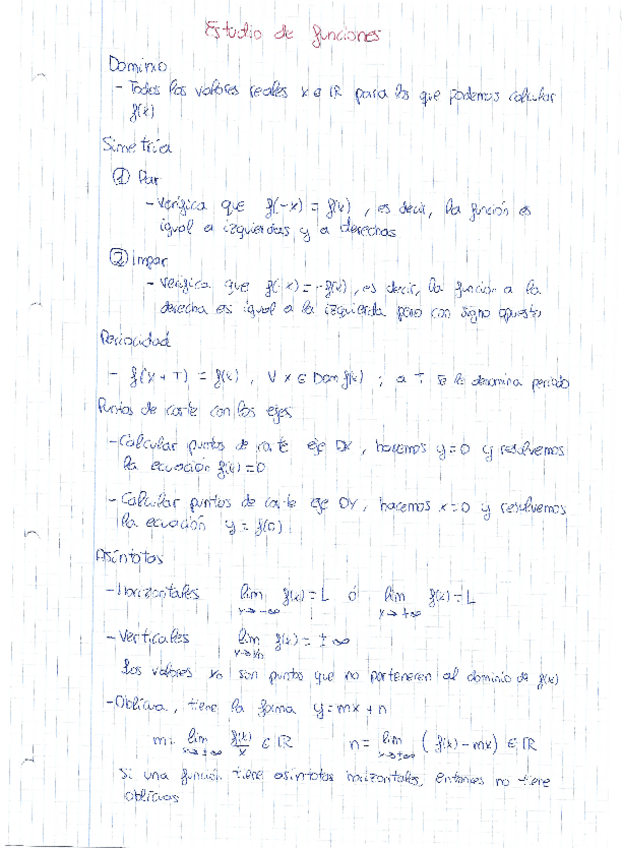 Estudio de funciones
Dominio
- Todos los valores reales x ∈ ℝ para los que podemos calcular
f(x)
Simetría
① Par
- Verifica que f(-x) = f(x), es decir, la función es
igual a izquierdas y a derechas
② Impar
- Verifica que f(-x) = -f(x), es decir, la función a la
derecha es igual a la izquierda pero con signo opuesto
Periocidad
- f(x + T) = f(x), ∀ x ∈ Dom f(x) ; a T se le denomina periodo
Puntos de corte con los ejes
- Calcular puntos de corte eje OX, hacemos y=0 y resolvemos
la ecuación f(x) = 0
- Calcular puntos de corte eje OY, hacemos x=0 y resolvemos
la ecuación y = f(0)
Asíntotas
- Horizontales lim x→-∞ f(x) = L ó lim x→+∞ f(x) = L
- Verticales lim x→x₀ f(x) = ± ∞
Los valores x₀ son puntos que no pertenecen al dominio de f(x)
- Oblicua, tiene la forma y = mx + n
m = lim x→±∞ f(x)/x ∈ ℝ n = lim x→±∞ (f(x) - mx) ∈ ℝ
Si una función tiene asíntotas horizontales, entonces no tiene
oblicuas